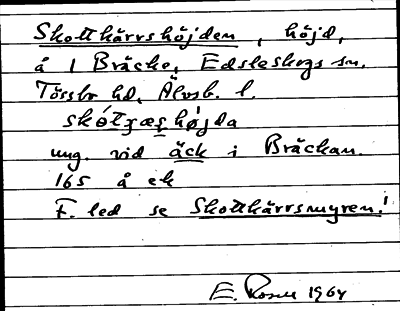 Skottkärrshöjden, höjd,
å 1 Bräcke, Edsleskogs sn.
Tössbo hd, Älvsb. l.
skótʒæʂhø̀jda
ung. vid äck i Bräckan.
165 å ek
F. led se Skottkärrsmyren!
E. Rosén 1964